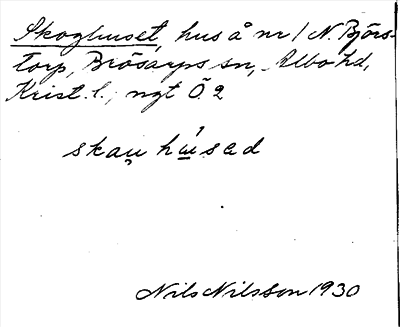 Skoghuset, hus å nr 1 N. Björs-
torp, Brösarps sn, Albo hd,
Krist. l., ngt Ö 2
skau̯ hússad
Nils Nilsson 1930